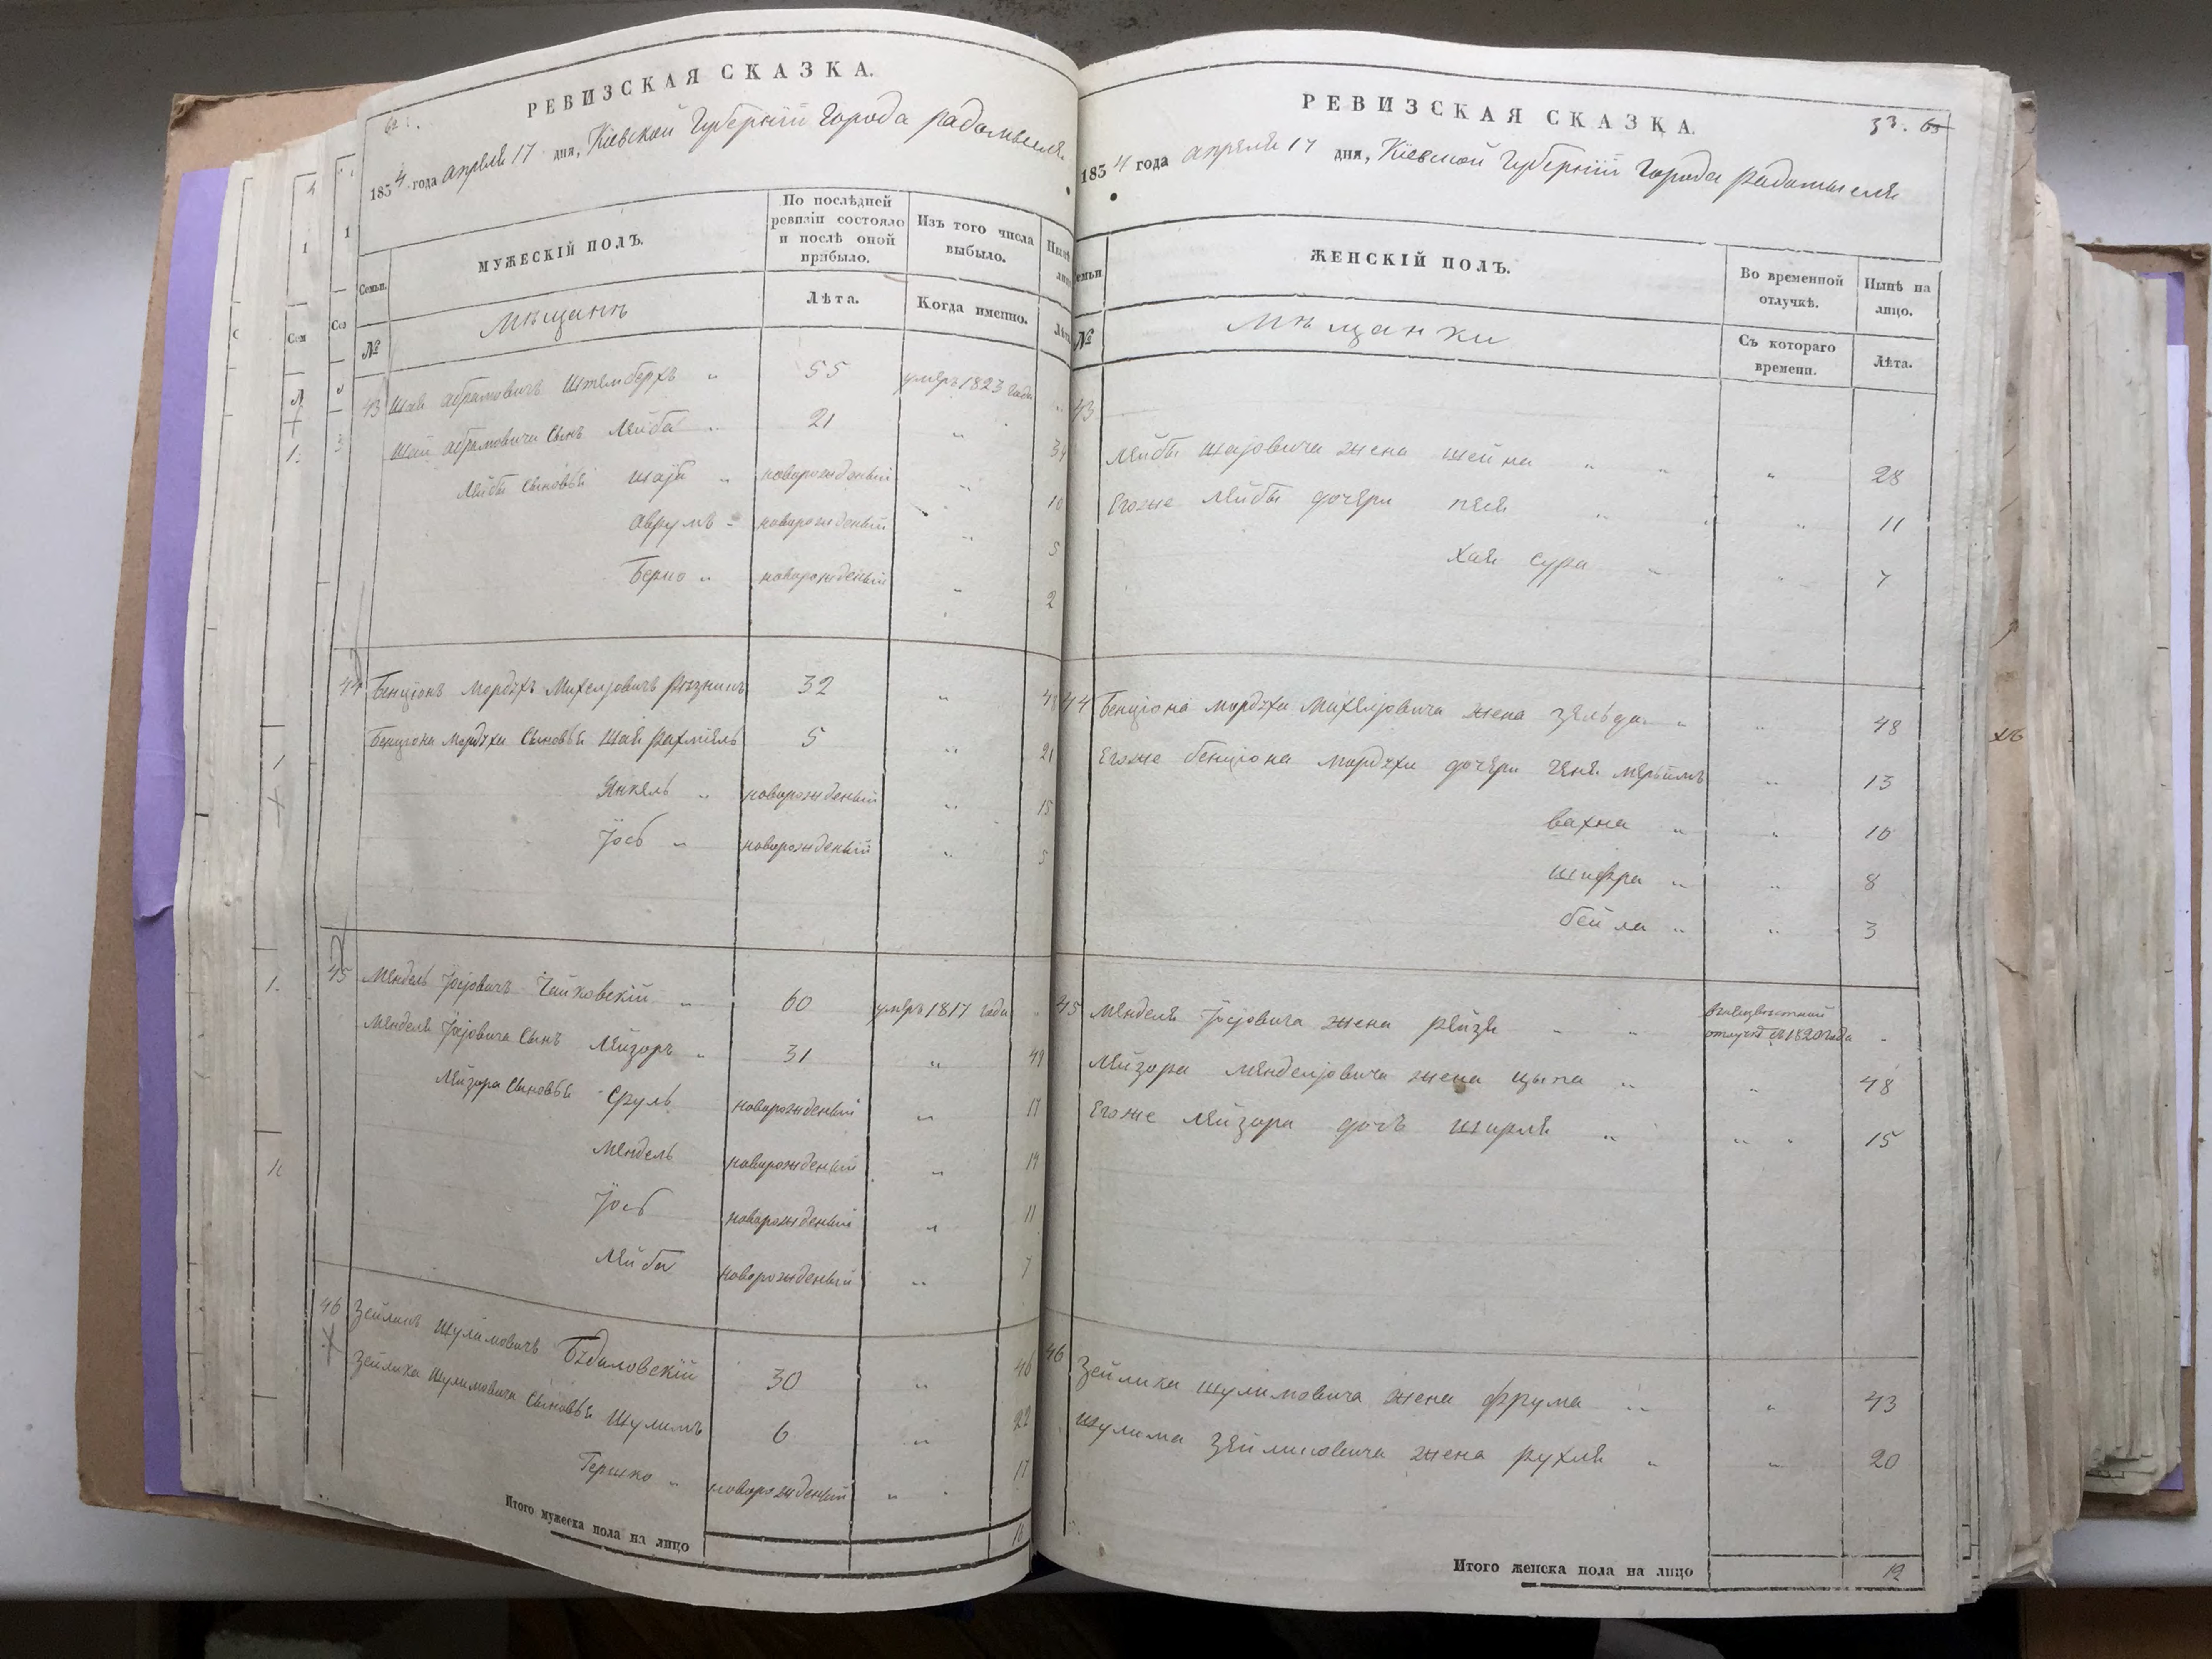 62.
РЕВИЗСКАЯ СКАЗКА.
1854 года апреля 17 дня, Кіевской Губерніи города радомысля
Семьи.
МУЖЕСКІЙ ПОЛЪ.
По послѣдней ревизіи состояло и послѣ оной прибыло.
Изъ того числа выбыло.
№
Мѣщанъ
Лѣта.
Когда именно.
43 Шая абрамовичъ Штембергъ " 55 умеръ 1823 года
Шаи абрамовича Сынъ Лейба " 21 " 39
Лейбы Сыновья шаја " новорожденый " 10
Аврумъ " новорожденый " 5
Берко " новорожденый " 2
44 Бенціонъ мордхъ Михелјовичъ Резникъ 32 " 48
Бенціона мордхи Сыновья шая рахмиель 5 " 21
Янкель " новорожденый " 15
Јосъ " новорожденый " 5
45 Мендель Јосјовичъ Чайковскій " 60 умеръ 1817 года
Менделя Јосјовича Сынъ Лейзоръ " 31 " 49
Лейзора Сыновья Сруль новорожденый " 17
Мендель новорожденый " 14
Јосъ новорожденый " 11
Лейба новорожденый " 7
46 Зейликъ шулимовичъ Бѣдиловскій 30 " 46
Зейлика шулимовича Сыновья Шулимъ 6 " 22
Гершко " новорожденый " 17
Итого мужеска пола на лицо 16
РЕВИЗСКАЯ СКАЗКА.
33. 63
1854 года апреля 17 дня, Кіевской Губерніи города радомысля
ЖЕНСКІЙ ПОЛЪ.
Во временной отлучкѣ.
Нынѣ на лицо.
№
Мѣщанки
Съ котораго времени.
Лѣта.
43
Лейбы шајовича жена шейна " " " 28
Егоже Лейбы дочери песя " " " 11
хая сура " " 7
44 Бенціона мордхи михелјовича жена зельда " " 48
Егоже бенціона мордхи дочери геня мерьимъ " 13
вахна " " 10
шифра " " 8
бейла " " 3
45 менделя Јосјовича жена рейзя " " в неизвѣстной отлучкѣ съ 1820 года "
Лейзора менделјовича жена цыпа " " 48
Егоже Лейзора дочь ширля " " " 15
46 Зейлика шулимовича жена фрума " " 43
шулима зейликовича жена рухля " " 20
Итого женска пола на лицо 12